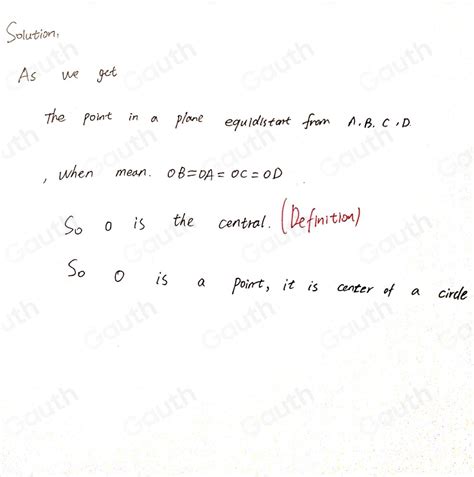 Solution,
As we get
The point in a plane equidistant from A. B. C. D
, when mean. OB=OA=OC=OD
So O is the central. (Definition)
So O is a point, it is center of a circle